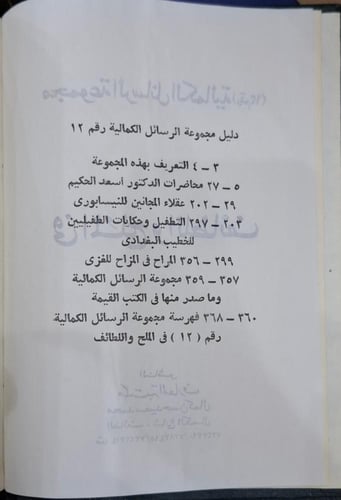 دليل مجموعة الرسائل الكمالية رقم ١٢
٣ – ٤ التعريف بهذه المجموعة
٥ – ٢٧ محاضرات الدكتور أسعد الحكيم
٢٩ – ٢٠٢ عقلاء المجانين للنيسابورى
٢٠٣ – ٢٩٧ التطفيل وحكايات الطفيليين
للخطيب البغدادى
٢٩٩ – ٣٥٦ المراح فى المزاح للغزى
٣٥٧ – ٣٥٩ مجموعة الرسائل الكمالية
وما صدر منها فى الكتب القيمة
٣٦٠ – ٣٦٨ فهرسة مجموعة الرسائل الكمالية
رقم ( ١٢ ) فى الملح واللطائف